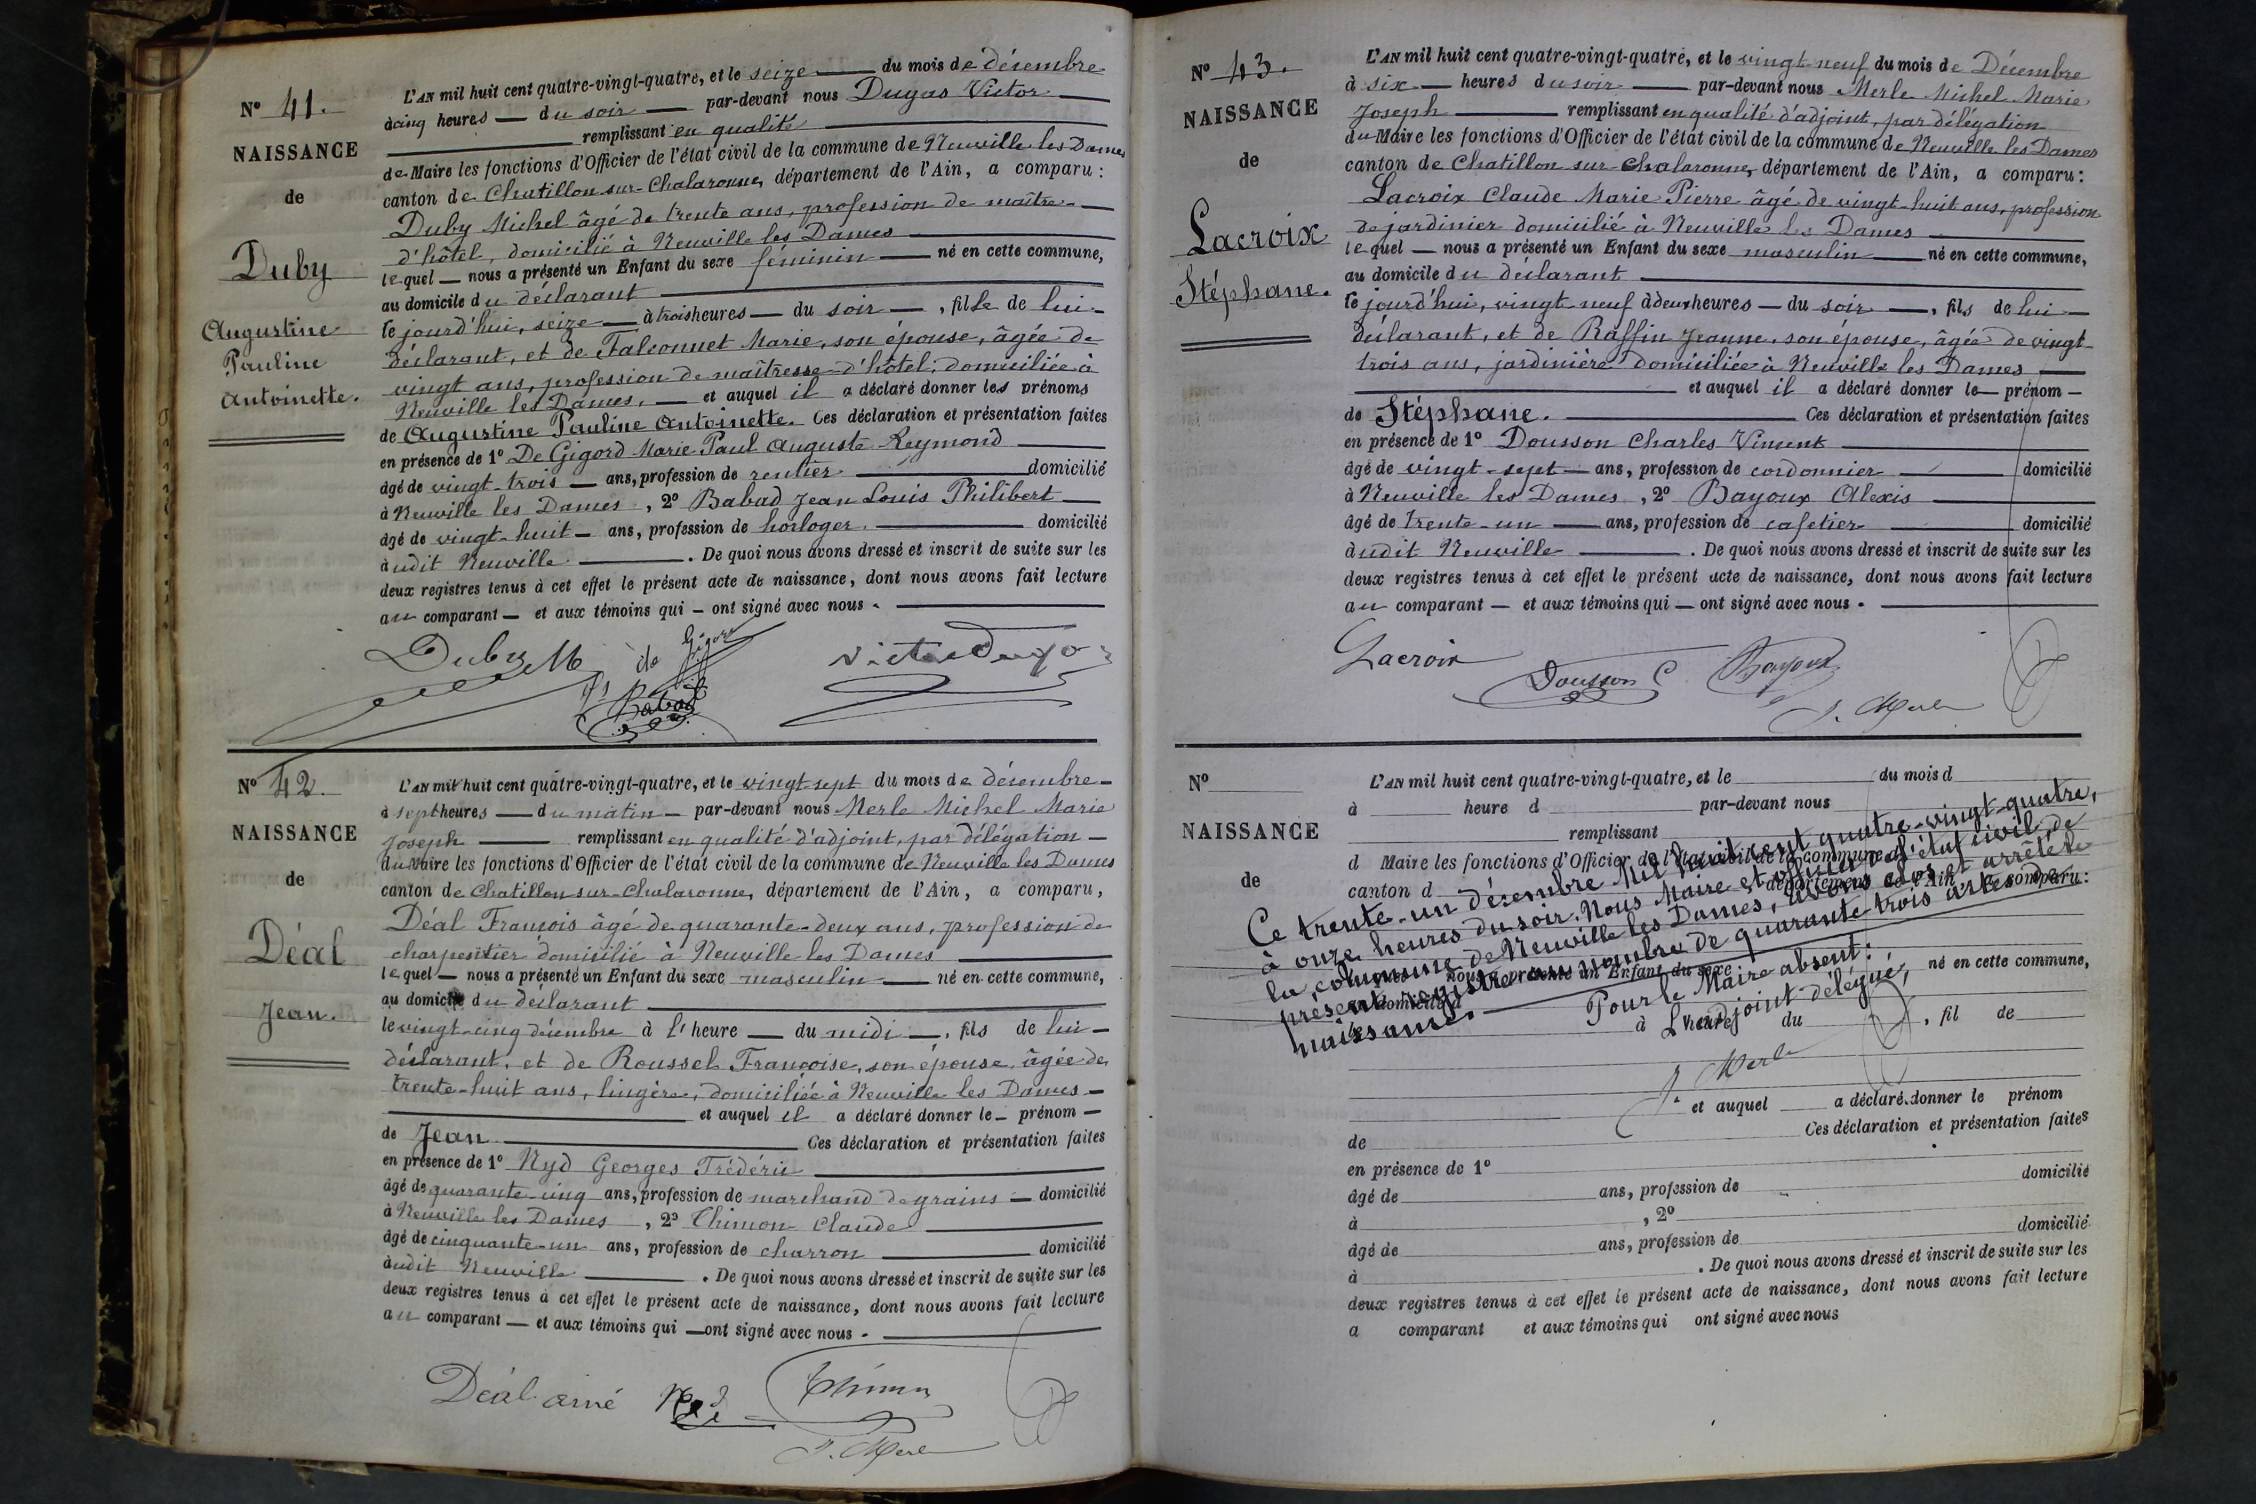 N° 41.
NAISSANCE
de
Duby
Augustine
Pauline
Antoinette.
L'AN mil huit cent quatre-vingt-quatre, et le seize du mois de décembre
à cinq heures du soir par-devant nous Dugas Victor
remplissant en qualité
de Maire les fonctions d'Officier de l'état civil de la commune de Neuville les Dames
canton de Chatillon-sur-Chalaronne, département de l'Ain, a comparu :
Duby Michel âgé de trente ans, profession de maître
d'hôtel, domicilié à Neuville les Dames
lequel nous a présenté un Enfant du sexe féminin né en cette commune,
au domicile du déclarant
le jourd'hui, seize à trois heures du soir , fille de lui
déclarant, et de Falconnet Marie, son épouse, âgée de
vingt ans, profession de maîtresse d'hôtel, domiciliée à
Neuville les Dames, et auquel il a déclaré donner les prénoms
de Augustine Pauline Antoinette. Ces déclaration et présentation faites
en présence de 1° De Gigord Marie Paul Auguste Reymond
âgé de vingt-trois ans, profession de rentier domicilié
à Neuville les Dames , 2° Babad Jean Louis Philibert
âgé de vingt-huit ans, profession de horloger domicilié
audit Neuville . De quoi nous avons dressé et inscrit de suite sur les
deux registres tenus à cet effet le présent acte de naissance, dont nous avons fait lecture
au comparant et aux témoins qui ont signé avec nous.
Duby M de Gigord Victor Dugas
Babad
N° 42.
NAISSANCE
de
Déal
Jean.
L'AN mil huit cent quatre-vingt-quatre, et le vingt-sept du mois de décembre
à sept heures du matin par-devant nous Merle Michel Marie
Joseph remplissant en qualité d'adjoint, par délégation
du Maire les fonctions d'Officier de l'état civil de la commune de Neuville les Dames
canton de Chatillon-sur-Chalaronne, département de l'Ain, a comparu,
Déal François âgé de quarante-deux ans, profession de
charpentier domicilié à Neuville les Dames
lequel nous a présenté un Enfant du sexe masculin né en cette commune,
au domicile du déclarant
le vingt-cinq décembre à l'heure du midi , fils de lui
déclarant, et de Roussel Françoise, son épouse, âgée de
trente-huit ans, lingère, domiciliée à Neuville les Dames
et auquel il a déclaré donner le prénom
de Jean Ces déclaration et présentation faites
en présence de 1° Nyd Georges Frédéric
âgé de quarante-cinq ans, profession de marchand de grains domicilié
à Neuville les Dames , 2° Thimon Claude
âgé de cinquante-un ans, profession de charron domicilié
audit Neuville . De quoi nous avons dressé et inscrit de suite sur les
deux registres tenus à cet effet le présent acte de naissance, dont nous avons fait lecture
au comparant et aux témoins qui ont signé avec nous.
Déal ainé Nyd Thimon
J. Merle
N° 43.
NAISSANCE
de
Lacroix
Stéphane.
L'AN mil huit cent quatre-vingt-quatre, et le vingt-neuf du mois de Décembre
à six heures du soir par-devant nous Merle Michel Marie
Joseph remplissant en qualité d'adjoint, par délégation
du Maire les fonctions d'Officier de l'état civil de la commune de Neuville les Dames
canton de Chatillon-sur-Chalaronne, département de l'Ain, a comparu :
Lacroix Claude Marie Pierre âgé de vingt-huit ans, profession
de jardinier domicilié à Neuville les Dames
lequel nous a présenté un Enfant du sexe masculin né en cette commune,
au domicile du déclarant
le jourd'hui, vingt-neuf à deux heures du soir , fils de lui
déclarant, et de Raffin Jeanne, son épouse, âgée de vingt-
trois ans, jardinière domiciliée à Neuville les Dames
et auquel il a déclaré donner le prénom
de Stéphane. Ces déclaration et présentation faites
en présence de 1° Dousson Charles Vincent
âgé de vingt-sept ans, profession de cordonnier domicilié
à Neuville les Dames , 2° Bayoux Alexis
âgé de trente-un ans, profession de cafetier domicilié
audit Neuville . De quoi nous avons dressé et inscrit de suite sur les
deux registres tenus à cet effet le présent acte de naissance, dont nous avons fait lecture
au comparant et aux témoins qui ont signé avec nous.
Lacroix Dousson C Bayoux
J. Merle
N°
NAISSANCE
de
L'AN mil huit cent quatre-vingt-quatre, et le du mois d
à heure d par-devant nous
remplissant
d Maire les fonctions d'Officier de l'état civil de la commune d
canton d département de l'Ain, a comparu :
Ce trente-un décembre mil huit cent quatre-vingt-quatre,
à onze heures du soir, Nous Maire et officier de l'état civil de
la commune de Neuville les Dames, avons clos et arrêté le
présent registre au nombre de quarante-trois actes de
naissance.
Pour le Maire absent :
L'adjoint délégué,
J. Merle
nous a présenté un Enfant du sexe né en cette commune,
au domicile d
le à heure du , fil de
et auquel a déclaré donner le prénom
de Ces déclaration et présentation faites
en présence de 1°
âgé de ans, profession de domicilié
à , 2°
âgé de ans, profession de domicilié
à . De quoi nous avons dressé et inscrit de suite sur les
deux registres tenus à cet effet le présent acte de naissance, dont nous avons fait lecture
a comparant et aux témoins qui ont signé avec nous